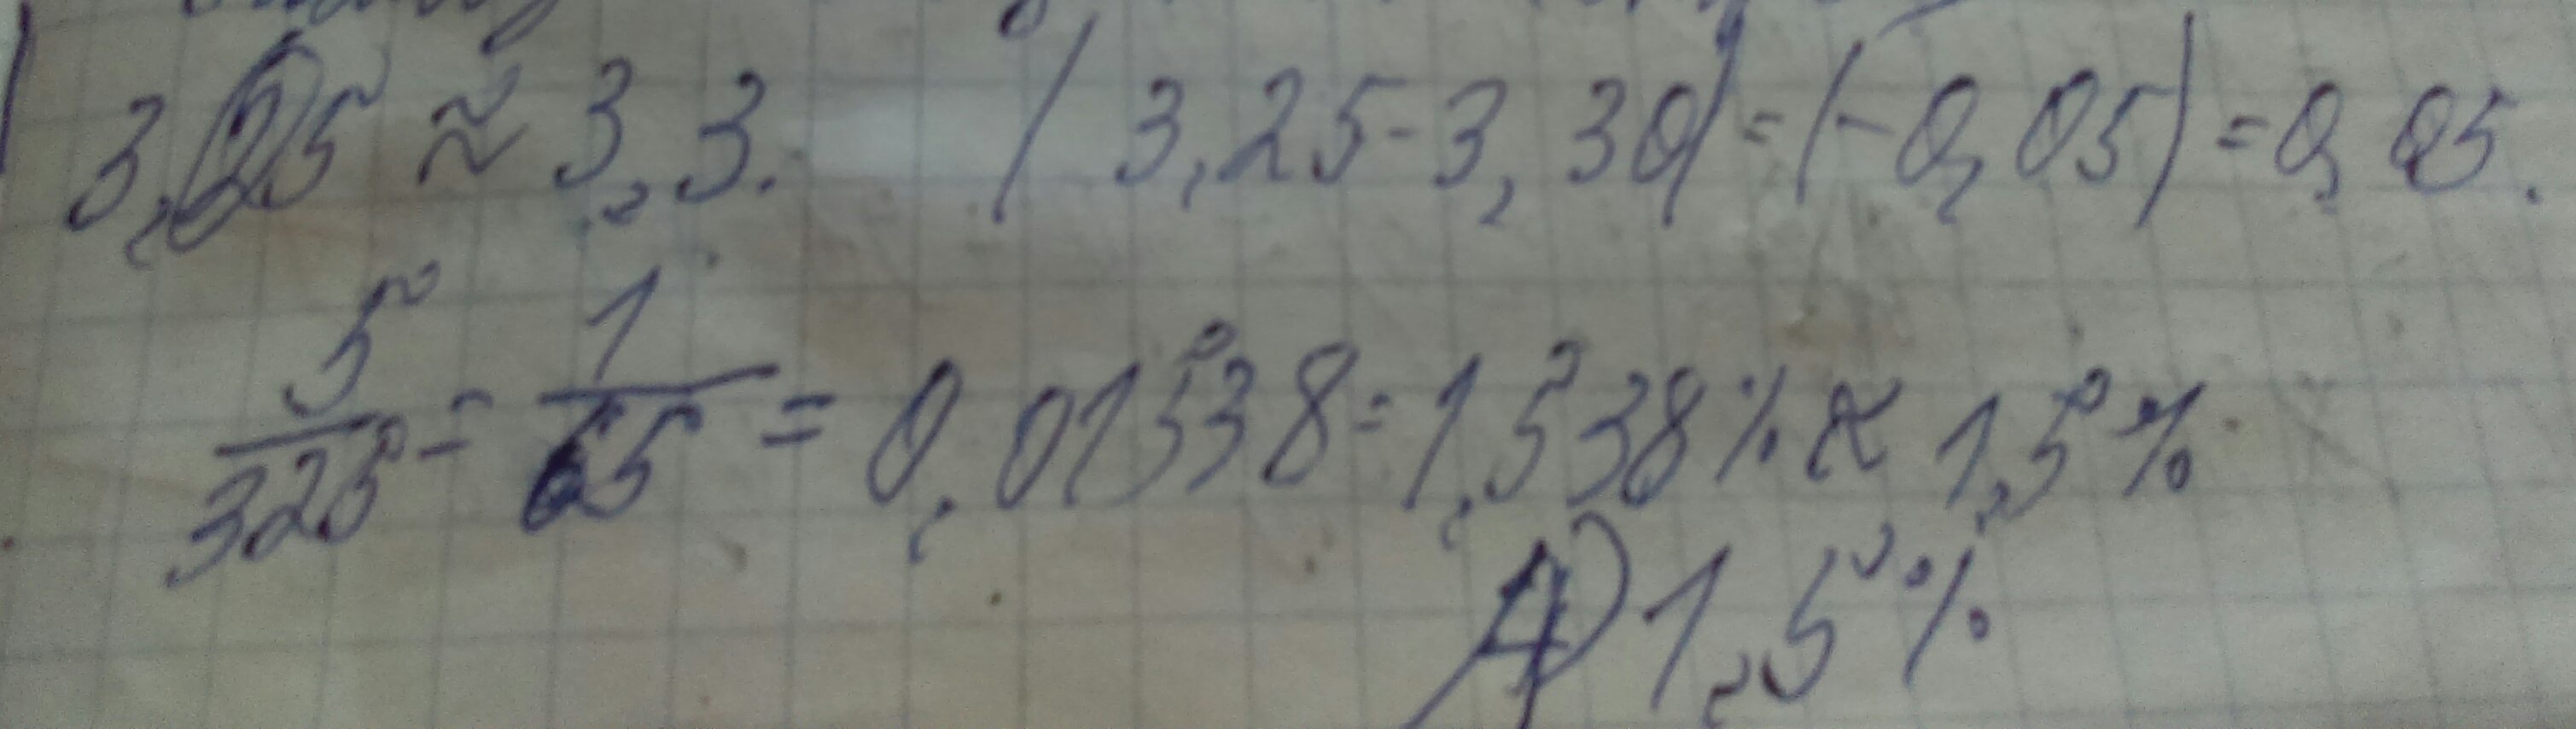 3,25 ≈ 3,3. |3,25-3,30|=(-0,05)=0,05.
5/325 = 1/65 = 0,01538=1,538% ≈ 1,5%.
4) 1,5%